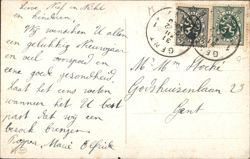 Lieve Nef en Nicht
en kinderen,
Wij wenschen U allen
een gelukkig Nieuwjaar
en veel voorspoed en
eene goede gezondheid.
Laat het eens weten
wanneer het U best
past dat wij een
bezoek brengen
Marie
GENT
GENT
Mr Mme
Godshuizenlaan 23
Gent